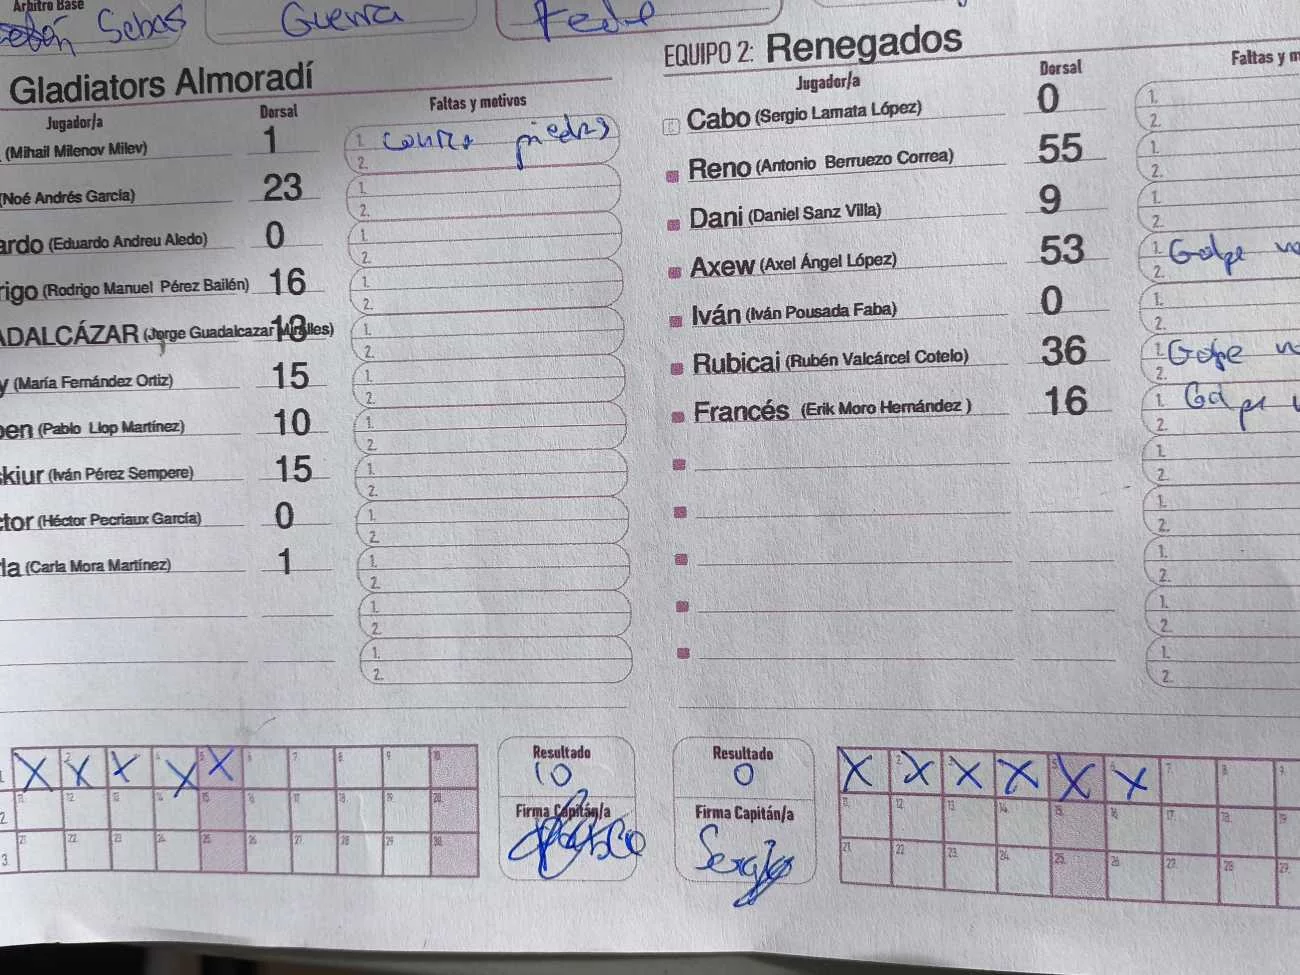 Árbitro Base
Sebas
Guerra
Fede
Gladiators Almoradí
Jugador/a Dorsal Faltas y motivos
(Mihail Milenov Milev) 1 1. contra piedras
2.
(Noé Andrés García) 23 1.
2.
ardo (Eduardo Andreu Aledo) 0 1.
2.
rigo (Rodrigo Manuel Pérez Bailén) 16 1.
2.
ADALCÁZAR (Jorge Guadalcazar Miralles) 13 1.
2.
y (María Fernández Ortiz) 15 1.
2.
en (Pablo Llop Martínez) 10 1.
2.
skiur (Iván Pérez Sempere) 15 1.
2.
tor (Héctor Pecriaux García) 0 1.
2.
la (Carla Mora Martínez) 1 1.
2.
1.
2.
1.
2.
EQUIPO 2: Renegados
Jugador/a Dorsal Faltas y m
Cabo (Sergio Lamata López) 0 1.
2.
Reno (Antonio Berruezo Correa) 55 1.
2.
Dani (Daniel Sanz Villa) 9 1.
2.
Axew (Axel Ángel López) 53 1. Golpe
2.
Iván (Iván Pousada Faba) 0 1.
2.
Rubicai (Rubén Valcárcel Cotelo) 36 1. Golpe
2.
Francés (Erik Moro Hernández ) 16 1. Golpe
2.
1.
2.
1.
2.
1.
2.
1.
2.
1.
2.
1 X X X X X 6 7 8 9 10
2 11 12 13 14 15 16 17 18 19 20
3 21 22 23 24 25 26 27 28 29 30
Resultado
10
Firma Capitán/a
Resultado
0
Firma Capitán/a
Sergio
X X X X X X 7 8 9
11 12 13 14 15 16 17 18 19
21 22 23 24 25 26 27 28 29